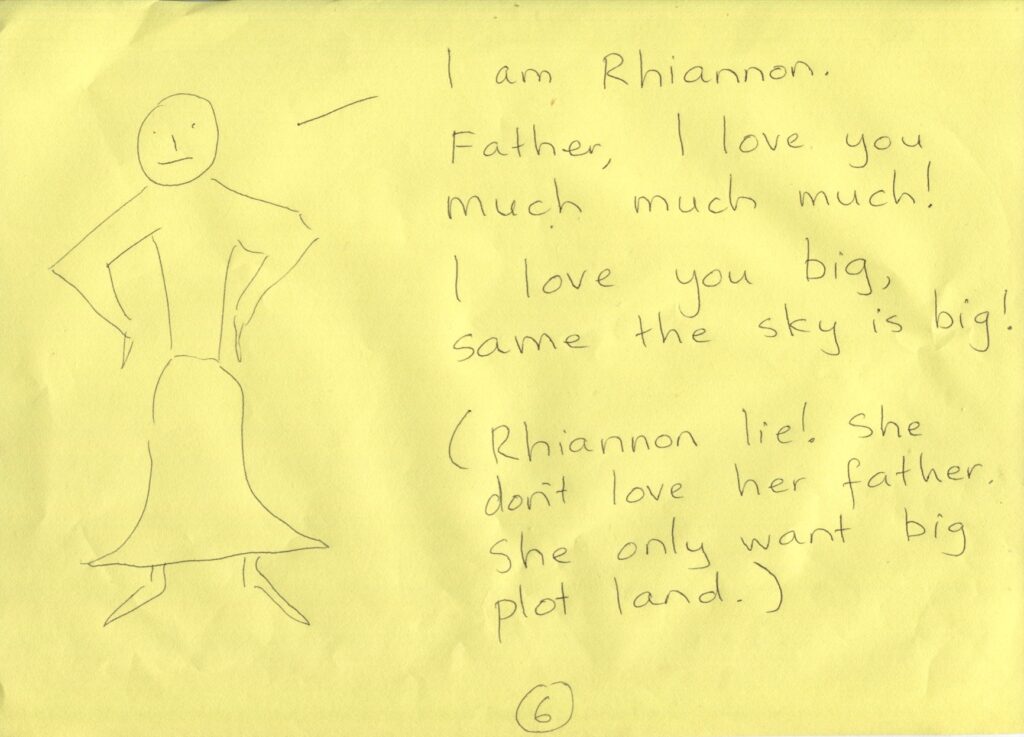 I am Rhiannon.
Father, I love you
much much much!
I love you big,
same the sky is big!
(Rhiannon lie! She
don't love her father.
She only want big
plot land.)
6